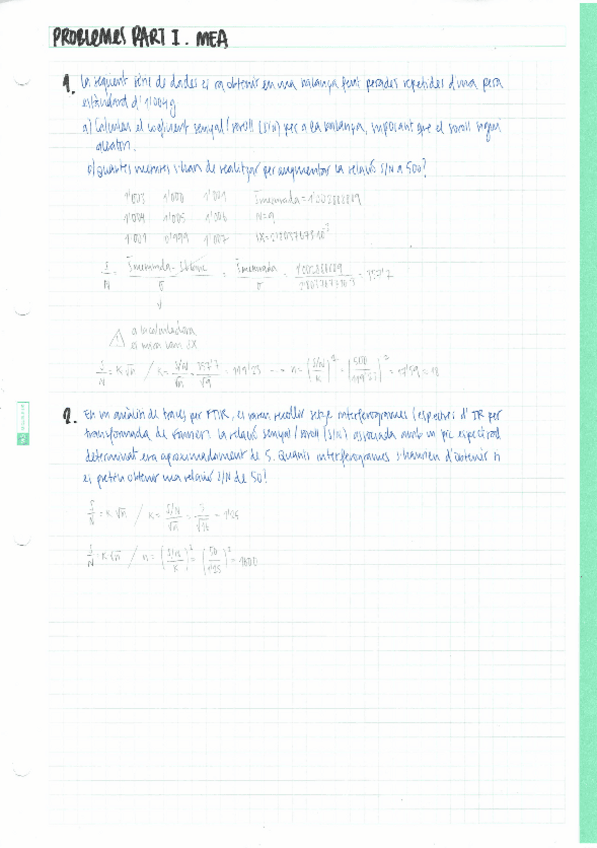 PROBLEMES PART I. MEA
1. La següent sèrie de dades es va obtenir en una balança fent pesades repetides d'una pesa
estàndard d'1'004g
a) Calculeu el coeficient senyal/soroll (S/N) per a la balança, suposant que el soroll sigui
aleatori.
b) Quantes mesures s'han de realitzar per augmentar la relació S/N a 500?
1'003 1'000 1'001
1'004 1'005 1'006 N=9
1'001 0'999 1'007
S/N = = = = 357'7
σ σ
a la calculadora
S/N = K√n / K = S/N / √n = 357'7 / √9 = 119'23 n = (S/N / K)² = (500 / 119'23)² = 17'59 ≈ 18
2. En un anàlisi de traces per FTIR, es varen recollir setze interferogrames (espectres d'IR per
transformada de Fourier). La relació senyal/soroll (S/N) associada amb un pic espectral
determinat era aproximadament de 5. Quants interferogrames s'haurien d'obtenir si
es pretén obtenir una relació S/N de 50?
S/N = K√n / K = S/N / √n = 5 / √16 = 1'25
S/N = K√n / n = (S/N / K)² = (50 / 1'25)² = 1600